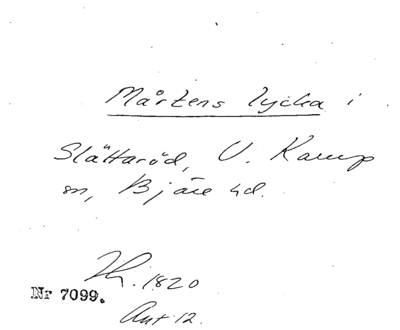 Mårtens lycka i
Slättaröd, V. Karup
sn, Bjäre hd.
1820
Nr 7099.
Akt 12.